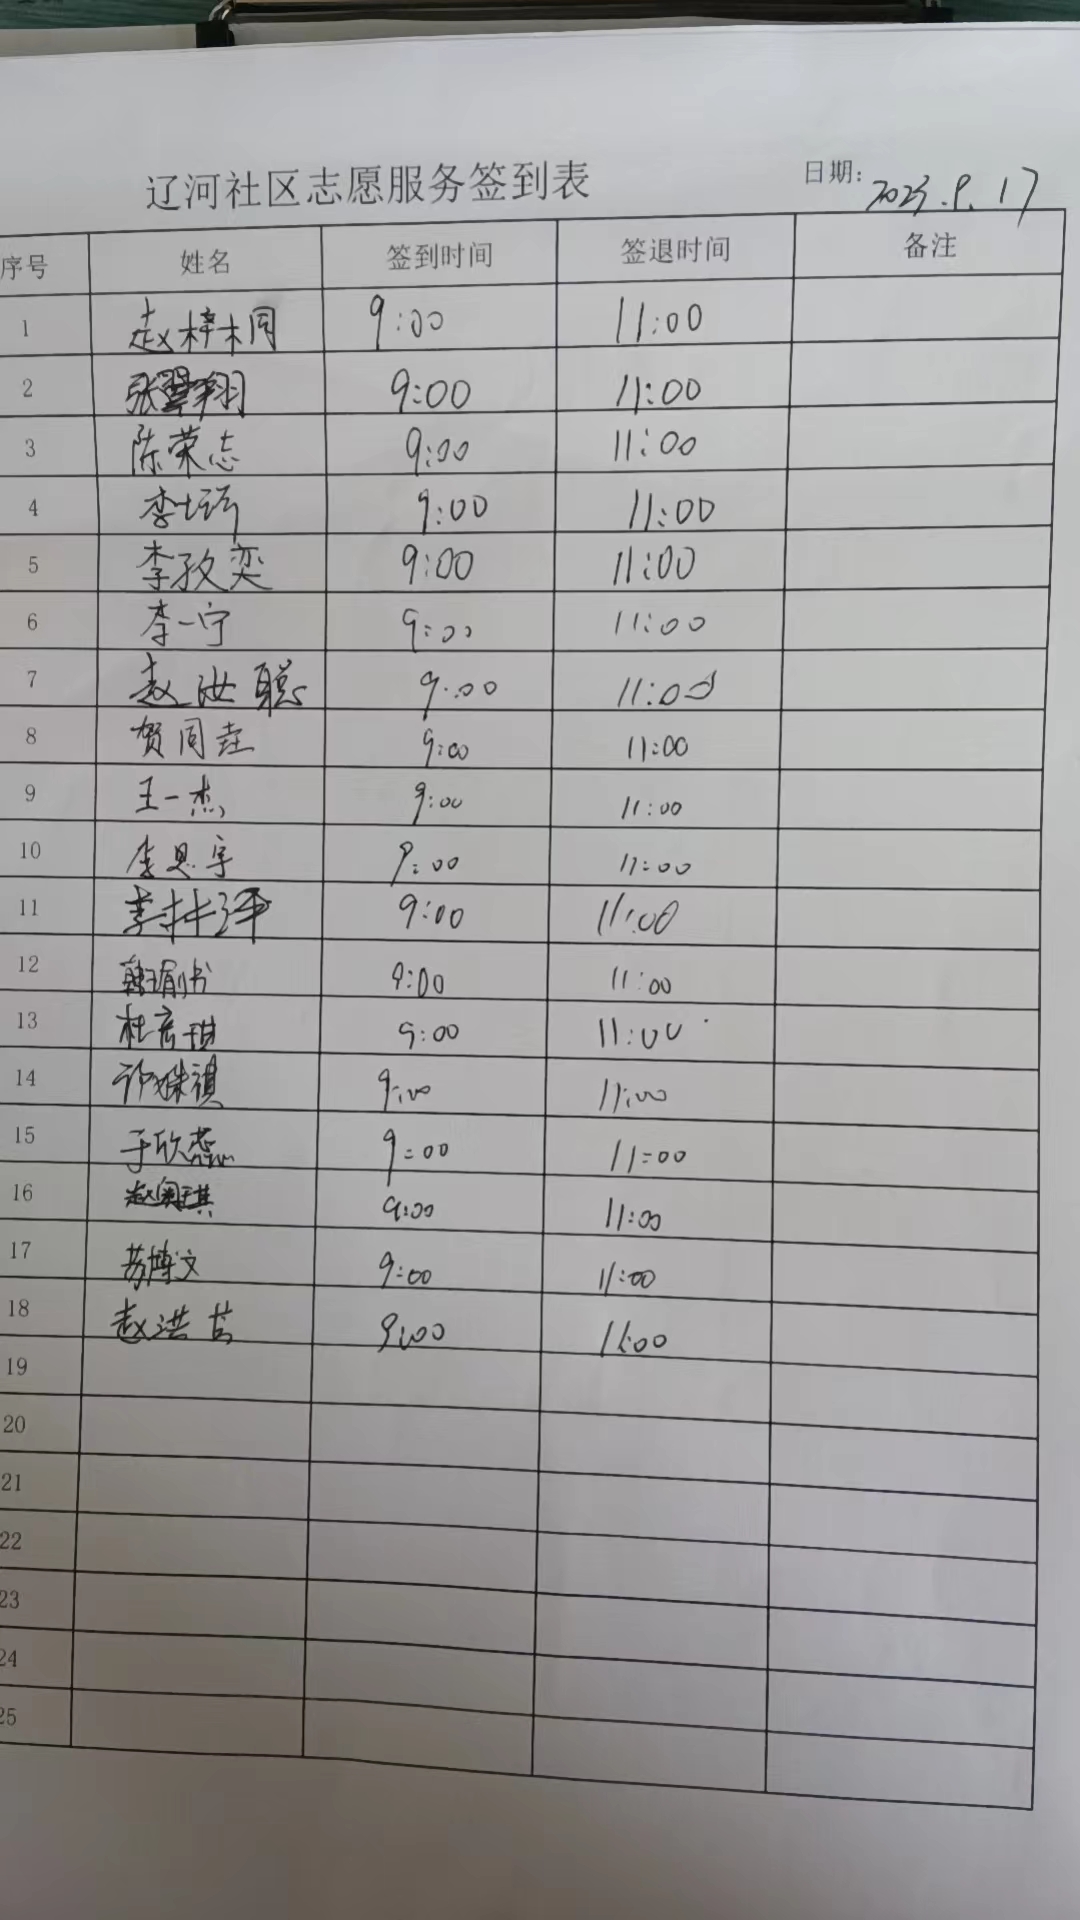 辽河社区志愿服务签到表 日期: 2023.9.17
序号 姓名 签到时间 签退时间 备注
1 赵梓桐 9:00 11:00
2 张翔 9:00 11:00
3 陈荣志 9:00 11:00
4 李 9:00 11:00
5 李玫奕 9:00 11:00
6 李一宁 9:00 11:00
7 赵汝聪 9:00 11:00
8 贺同垚 9:00 11:00
9 王一杰 9:00 11:00
10 李思宇 9:00 11:00
11 李林泽 9:00 11:00
12 韩瑜书 9:00 11:00
13 杜彦琪 9:00 11:00
14 许姝祺 9:00 11:00
15 于欣蕊 9:00 11:00
16 赵琪 9:00 11:00
17 苏博文 9:00 11:00
18 赵洪 9:00 11:00
19
20
21
22
23
24
25